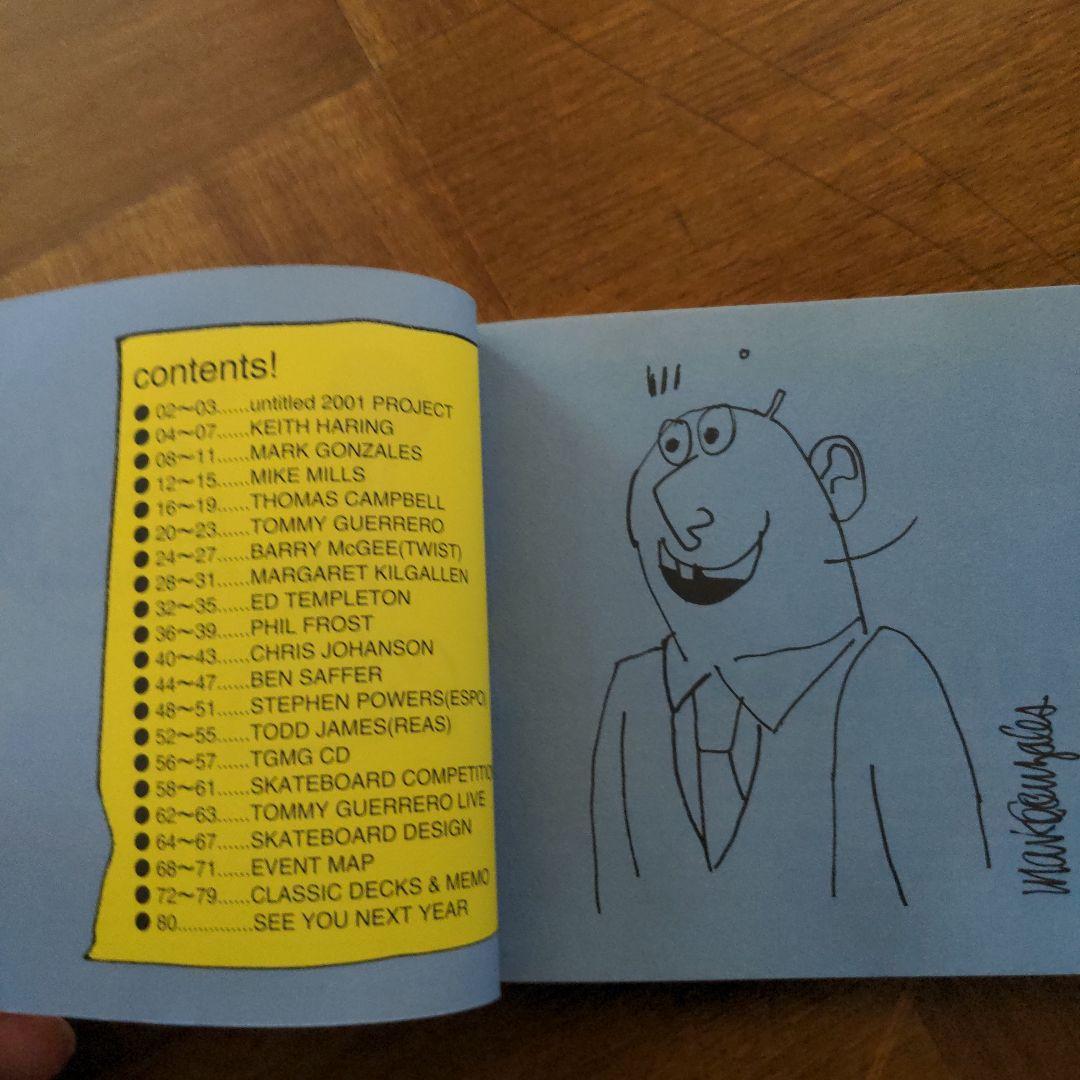 contents!
02~03......untitled 2001 PROJECT
04~07......KEITH HARING
08~11......MARK GONZALES
12~15......MIKE MILLS
16~19......THOMAS CAMPBELL
20~23......TOMMY GUERRERO
24~27......BARRY McGEE(TWIST)
28~31......MARGARET KILGALLEN
32~35......ED TEMPLETON
36~39......PHIL FROST
40~43......CHRIS JOHANSON
44~47......BEN SAFFER
48~51......STEPHEN POWERS(ESPO)
52~55......TODD JAMES(REAS)
56~57......TGMG CD
58~61......SKATEBOARD COMPETITIO
62~63......TOMMY GUERRERO LIVE
64~67......SKATEBOARD DESIGN
68~71......EVENT MAP
72~79......CLASSIC DECKS & MEMO
80..............SEE YOU NEXT YEAR
Mark Gonzales